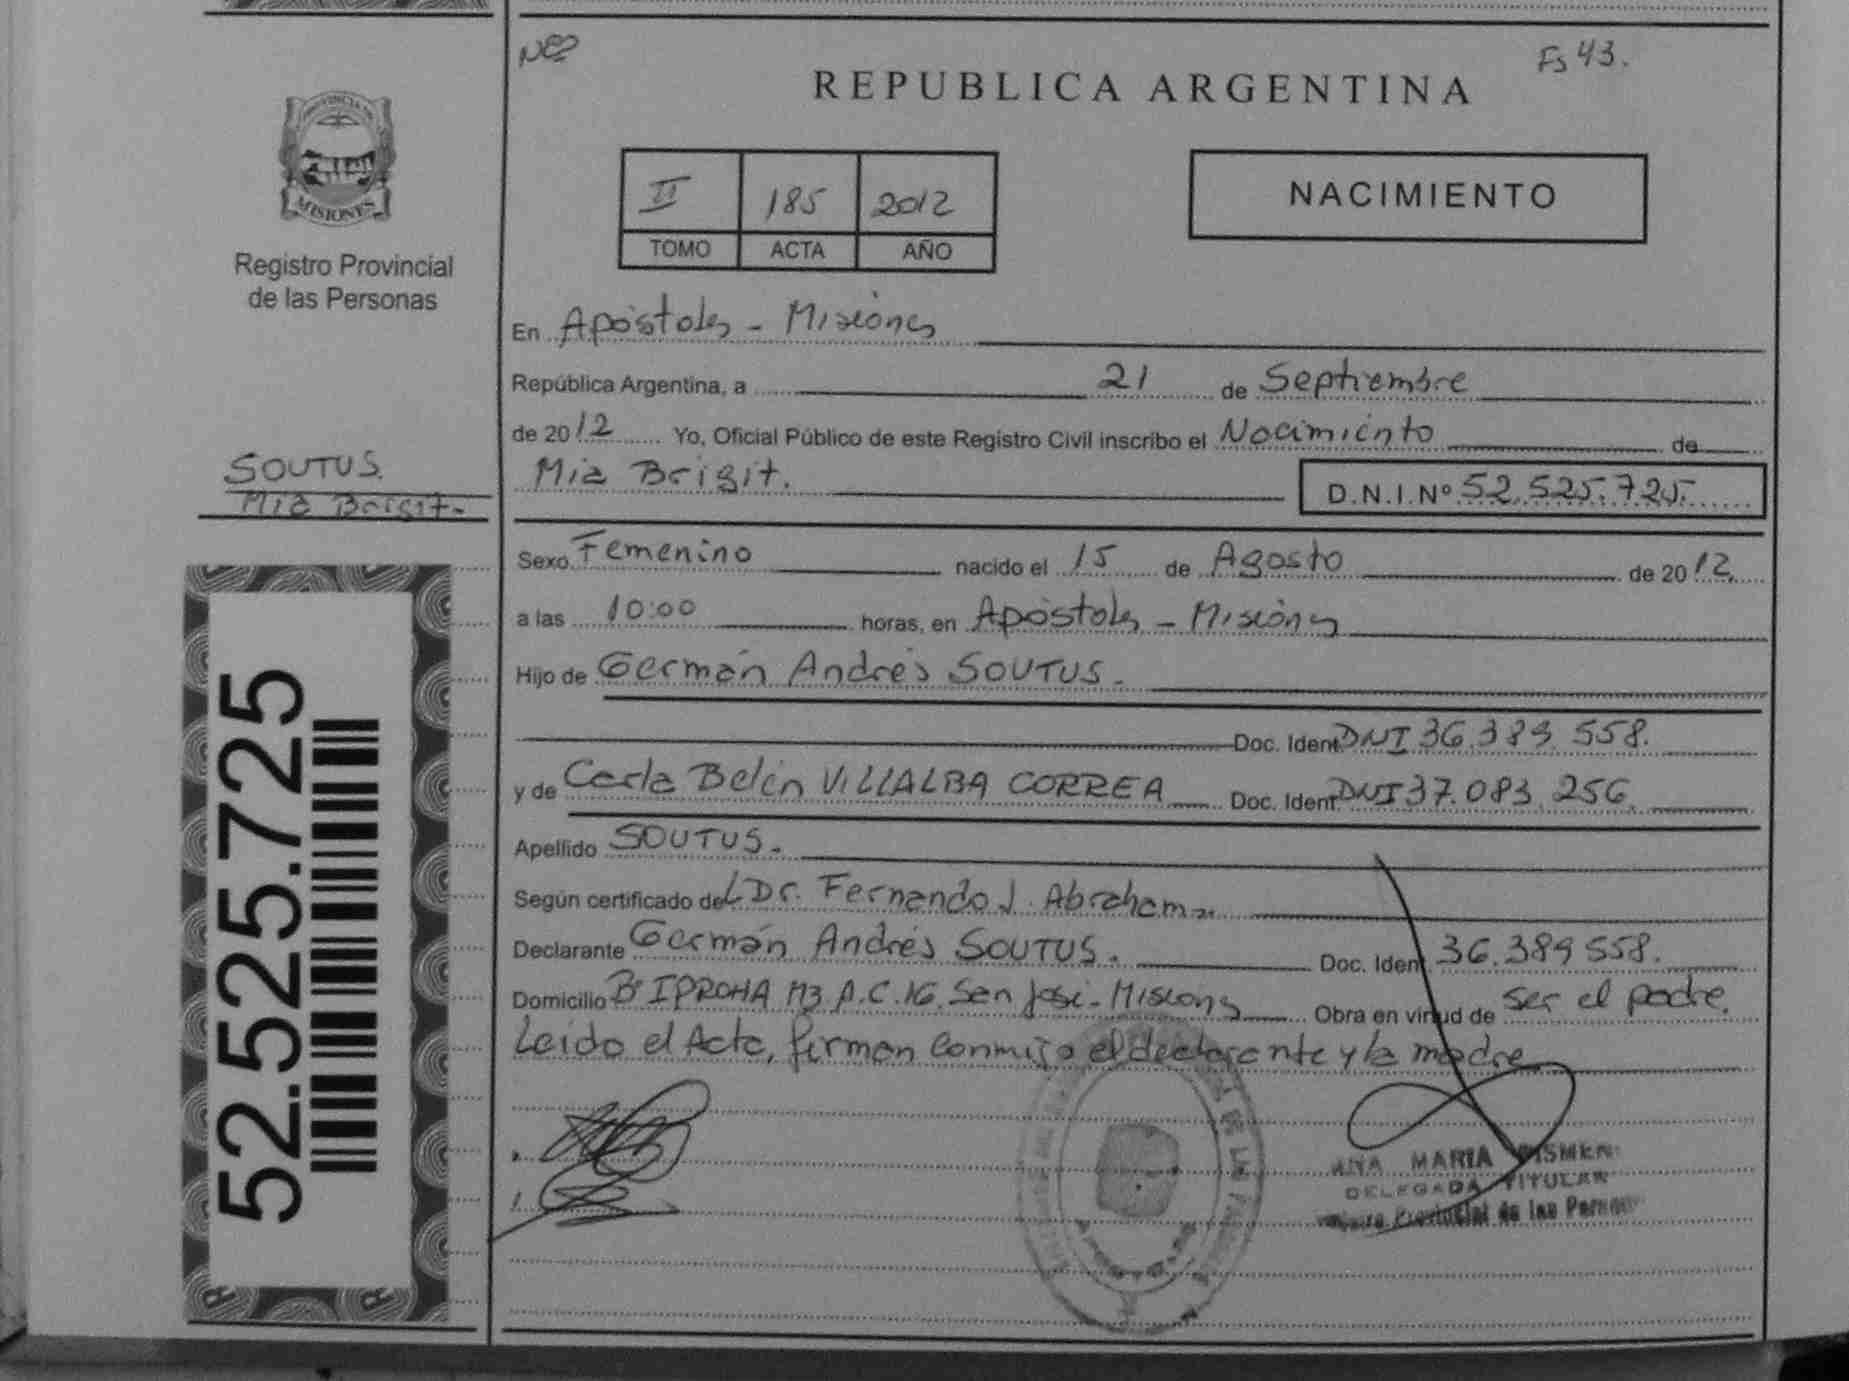 NE?
Fs 43.
REPUBLICA ARGENTINA
PROVINCIA DE
MISIONES
Registro Provincial
de las Personas
II 185 2012
TOMO ACTA AÑO
NACIMIENTO
En Apóstoles - Misiones
República Argentina, a 21 de Septiembre
de 2012 Yo, Oficial Público de este Registro Civil inscribo el Nacimiento de
Mia Brigit.
D.N.I.Nº 52.525.725.
SOUTUS.
Mia Brigit.
Sexo Femenino nacido el 15 de Agosto de 2012
a las 10:00 horas, en Apóstoles - Misiones
Hijo de Germán Andrés SOUTUS.
Doc. Ident DNI 36.389.558.
y de Carla Belén VILLALBA CORREA Doc. Ident DNI 37.083.256.
Apellido SOUTUS.
Según certificado del Dr. Fernando J. Abraham
Declarante Germán Andrés SOUTUS. Doc. Ident. 36.389 558.
Domicilio Bº IPRODHA M3 A.C.16. San José - Misiones Obra en virtud de ser el padre.
Leído el Acta, firman conmigo el declarante y la madre
52.525.725
ANA MARIA
DELEGADA TITULAR
Provincial de las Personas